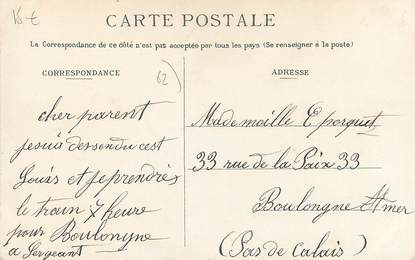 15 €
CARTE POSTALE
La Correspondance de ce côté n'est pas acceptée par tous les pays (Se renseigner à la poste)
CORRESPONDANCE
62
ADRESSE
cher parent
jesuis dessendu cest
et jeprendrés
le train 7 heure
pour Boulongne
a Sergeant
Mademoiselle E porquet
33 rue de la Paix 33
Boulongne S/mer
(Pas de Calais)